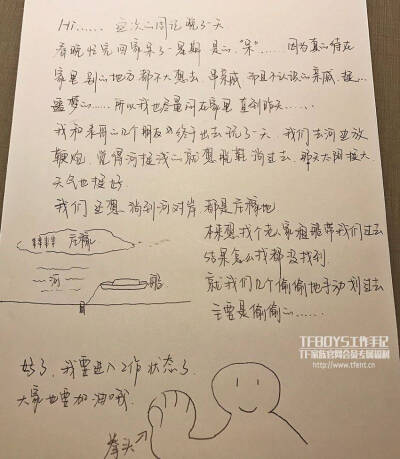 Hi…… 这次二周记晚了一天
春晚忙完回家呆了一星期 是的,"呆"…… 因为真的待在
家里 别的地方都不大想去 串亲戚 而且不认识的亲戚 挺…
噩梦的…… 所以我也尽量闷在家里 直到昨天……
我和表哥的几个朋友终于出去玩了一天 我们去河边放
鞭炮 觉得河挺浅的就想脱鞋淌过去 那天太阳挺大
天气也挺好
我们还想淌到河对岸 都是庄稼地
庄稼
本来想找个老家租船带我们过去
结果怎么找都没找到
河
船
就我们几个偷偷地手动划过去
主要是偷偷的……
好了,我要进入工作状态了
大家也要加油哦
拳头
TFBOYS工作手记
TF家族官网会员专属福利
http://www.tfent.cn